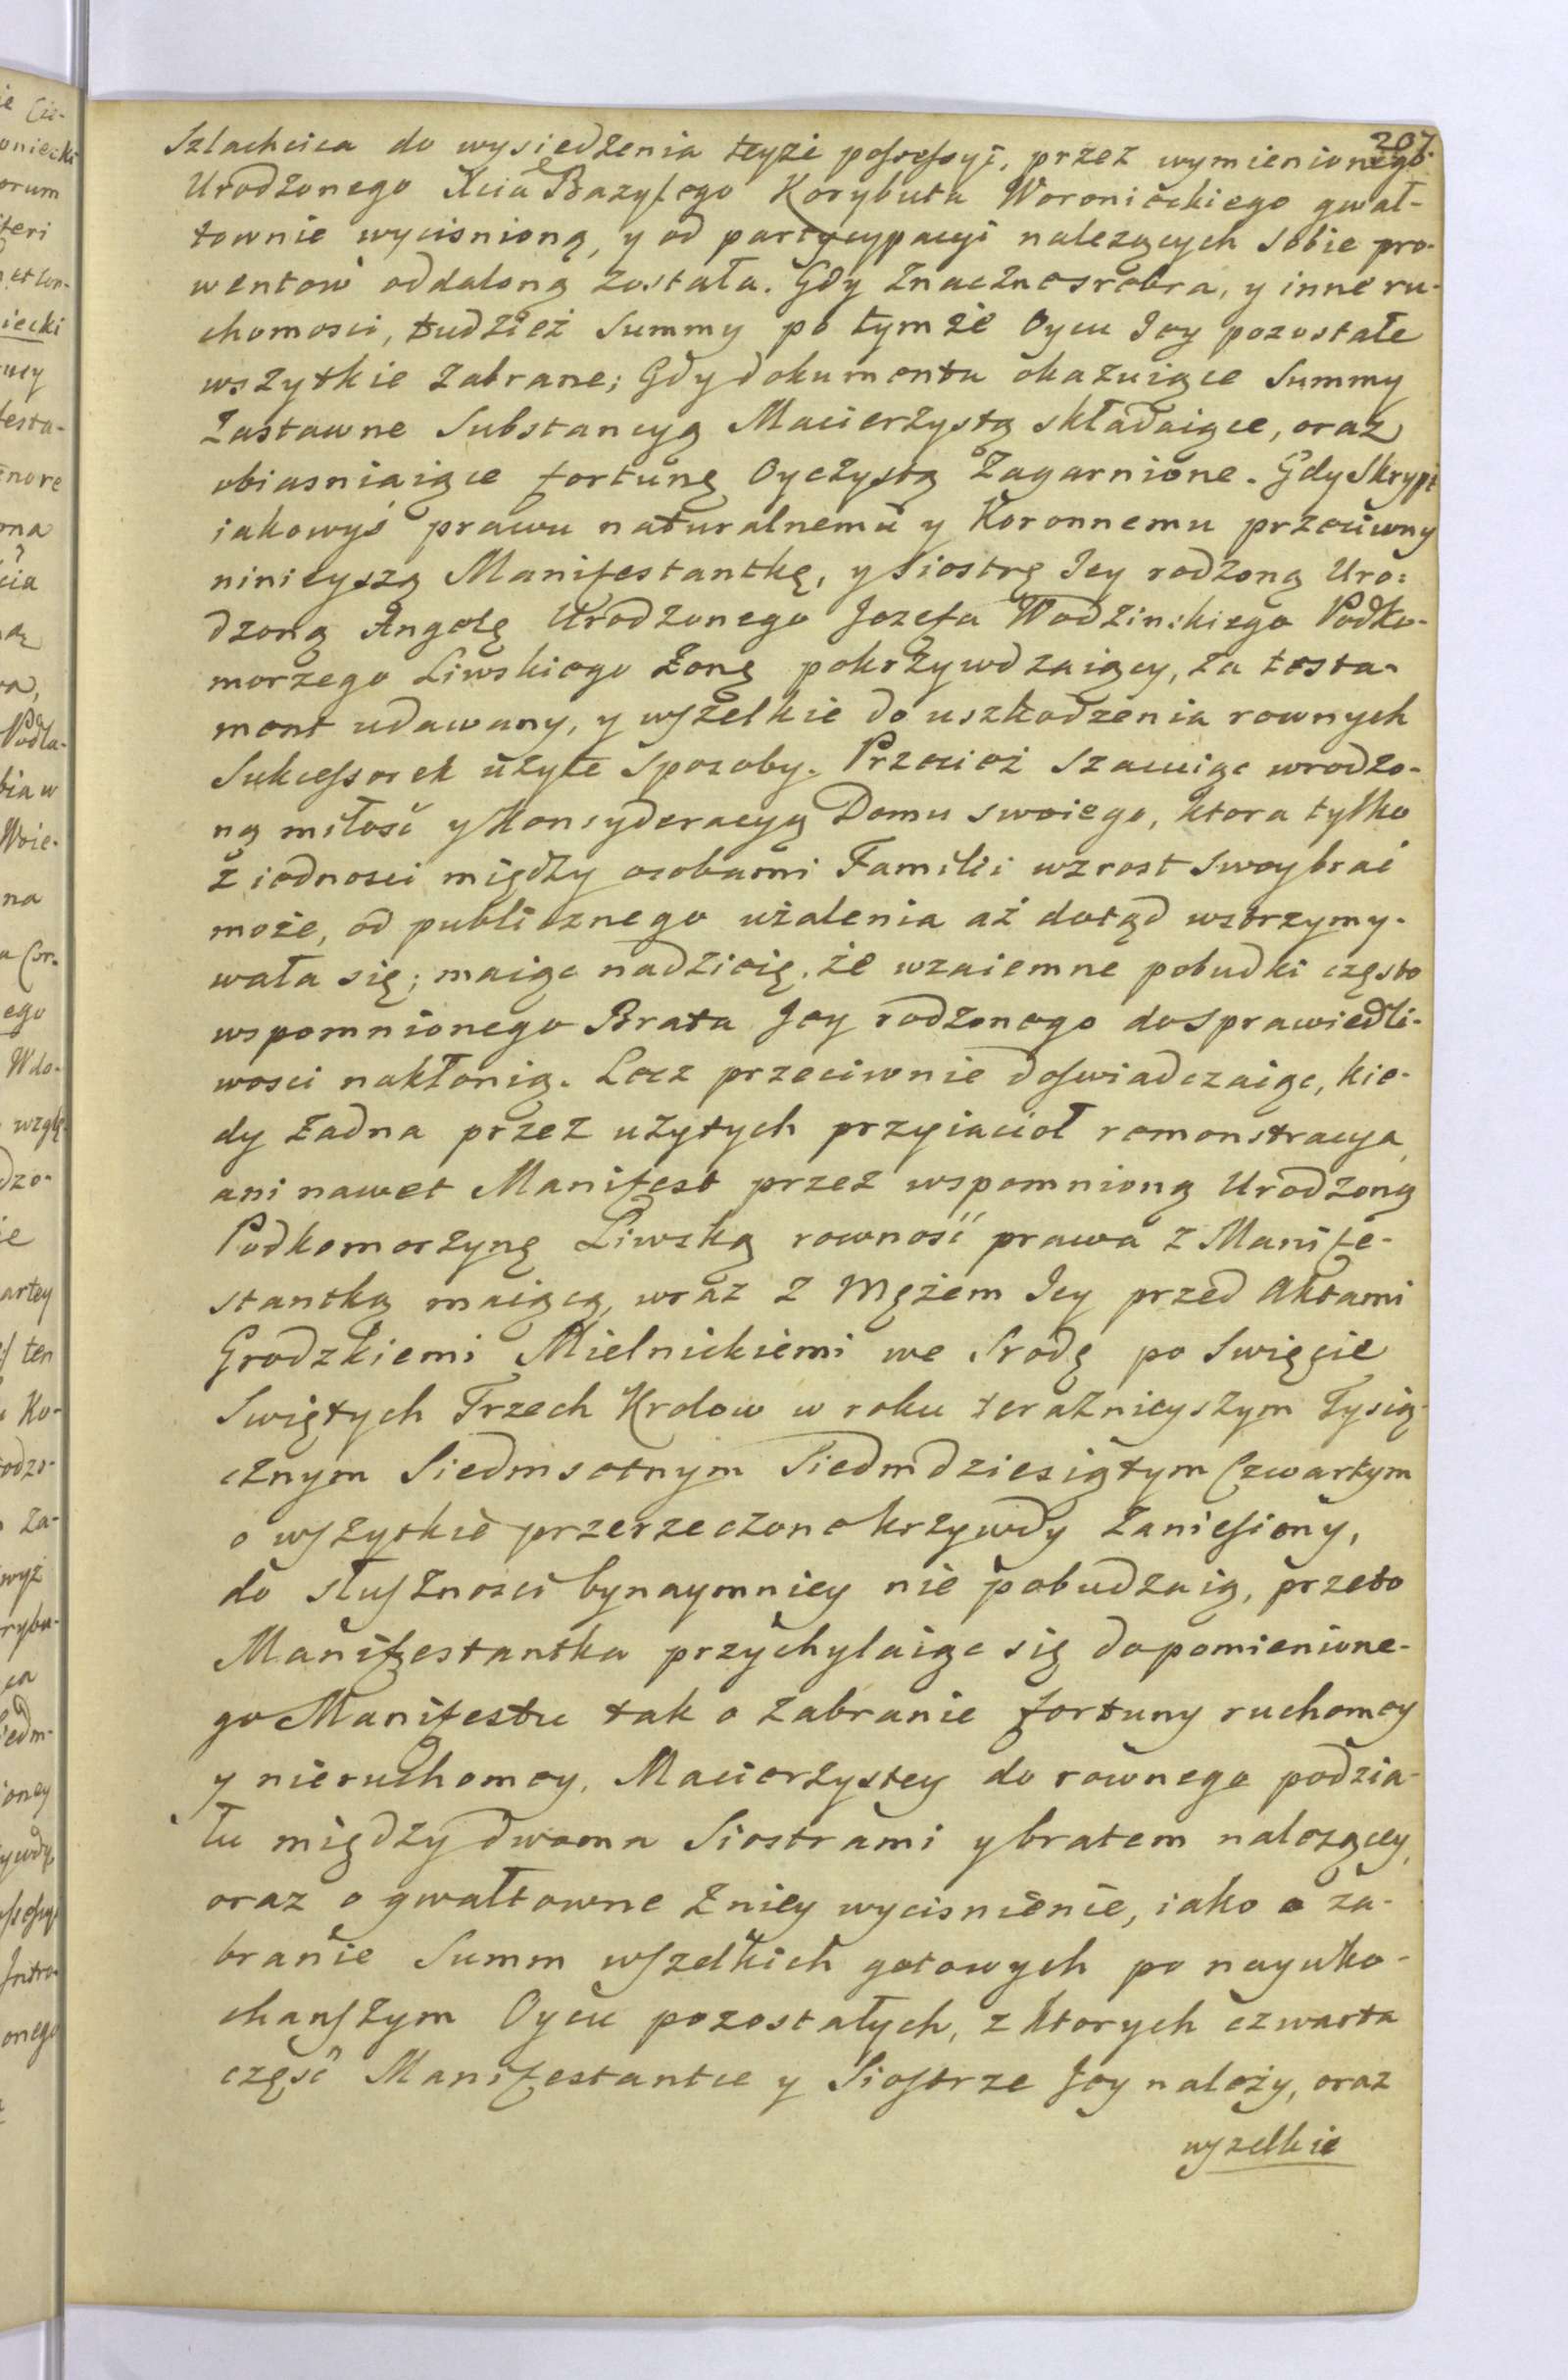 207.
Szlachcica do wysiedzenia teyże possessyi, przez wymienionego
Urodzonego Xcia Bazylego Korybuta Woronieckiego gwał-
townie wycisnioną, y od partycypacyi nalezących sobie pro-
wentow oddaloną została. Gdy znaczne srebra, y inne ru-
chomosci, tudzież Summy po tymże Oycu Jey pozostałe
wszytkie zabrane; Gdy dokumenta okazuiące Summy
Zastawne Substancyą Macierzystą składaiące, oraz
obiasniaiące fortunę Oyczystą Zagarnione. Gdy Skrypt
iakowyś prawu naturalnemu y Koronnemu przeciwny
ninieyszą Manifestantkę, y Siostrę Jey rodzoną Uro:
dzoną Angelę Urodzonego Jozefa Wodzinskiego Podko-
morzego Liwskiego Żonę pokrzywdzaiący, za testa-
ment udawany, y wszelkie do uszkodzenia rownych
Sukcessorek użyte Sposoby. Przecież szacuiąc wrodzo-
ną miłość y Konsyderacyą Domu swoiego, ktora tylko
z iednosci między osobami Familii wzrost swoy brać
może, od publicznego użalenia aż dotąd wstrzymy-
wała się; maiąc nadzieię, że wzaiemne pobudki często
wspomnionego Brata Jey rodzonego do sprawiedli-
wosci nakłonią. Lecz przeciwnie doswiadczaiąc, kie-
dy żadna przez użytych przyiacioł remonstracya,
ani nawet Manifest przez wspomnioną Urodzoną
Podkomorzynę Liwską rowność prawa z Manife-
stantką maiącą, wraz z Mężem Jey przed Aktami
Grodzkiemi Mielnickiemi we Srodę po Swięcie
Swiętych Trzech Krolow w roku teraznieyszym Tysią-
cznym Siedmsotnym Siedmdziesiątym Czwartym
o wszytkie przerzeczone krzywdy zaniesiony,
do słuszności bynaymniey nie pobudzaią, przeto
Manifestantka przychylaiąc się do pomienione-
go Manifestu tak o zabranie fortuny ruchomey
y nieruchomey, Macierzystey do rownego podzia-
łu między dwoma Siostrami y bratem należącey,
oraz o gwałtowne z niey wycisnienie, iako o za-
branie Summ wszelkich gotowych po nayuko-
chanszym Oycu pozostałych, z ktorych czwarta
część Manifestantce y Siostrze Jey należy, oraz
wszelkie